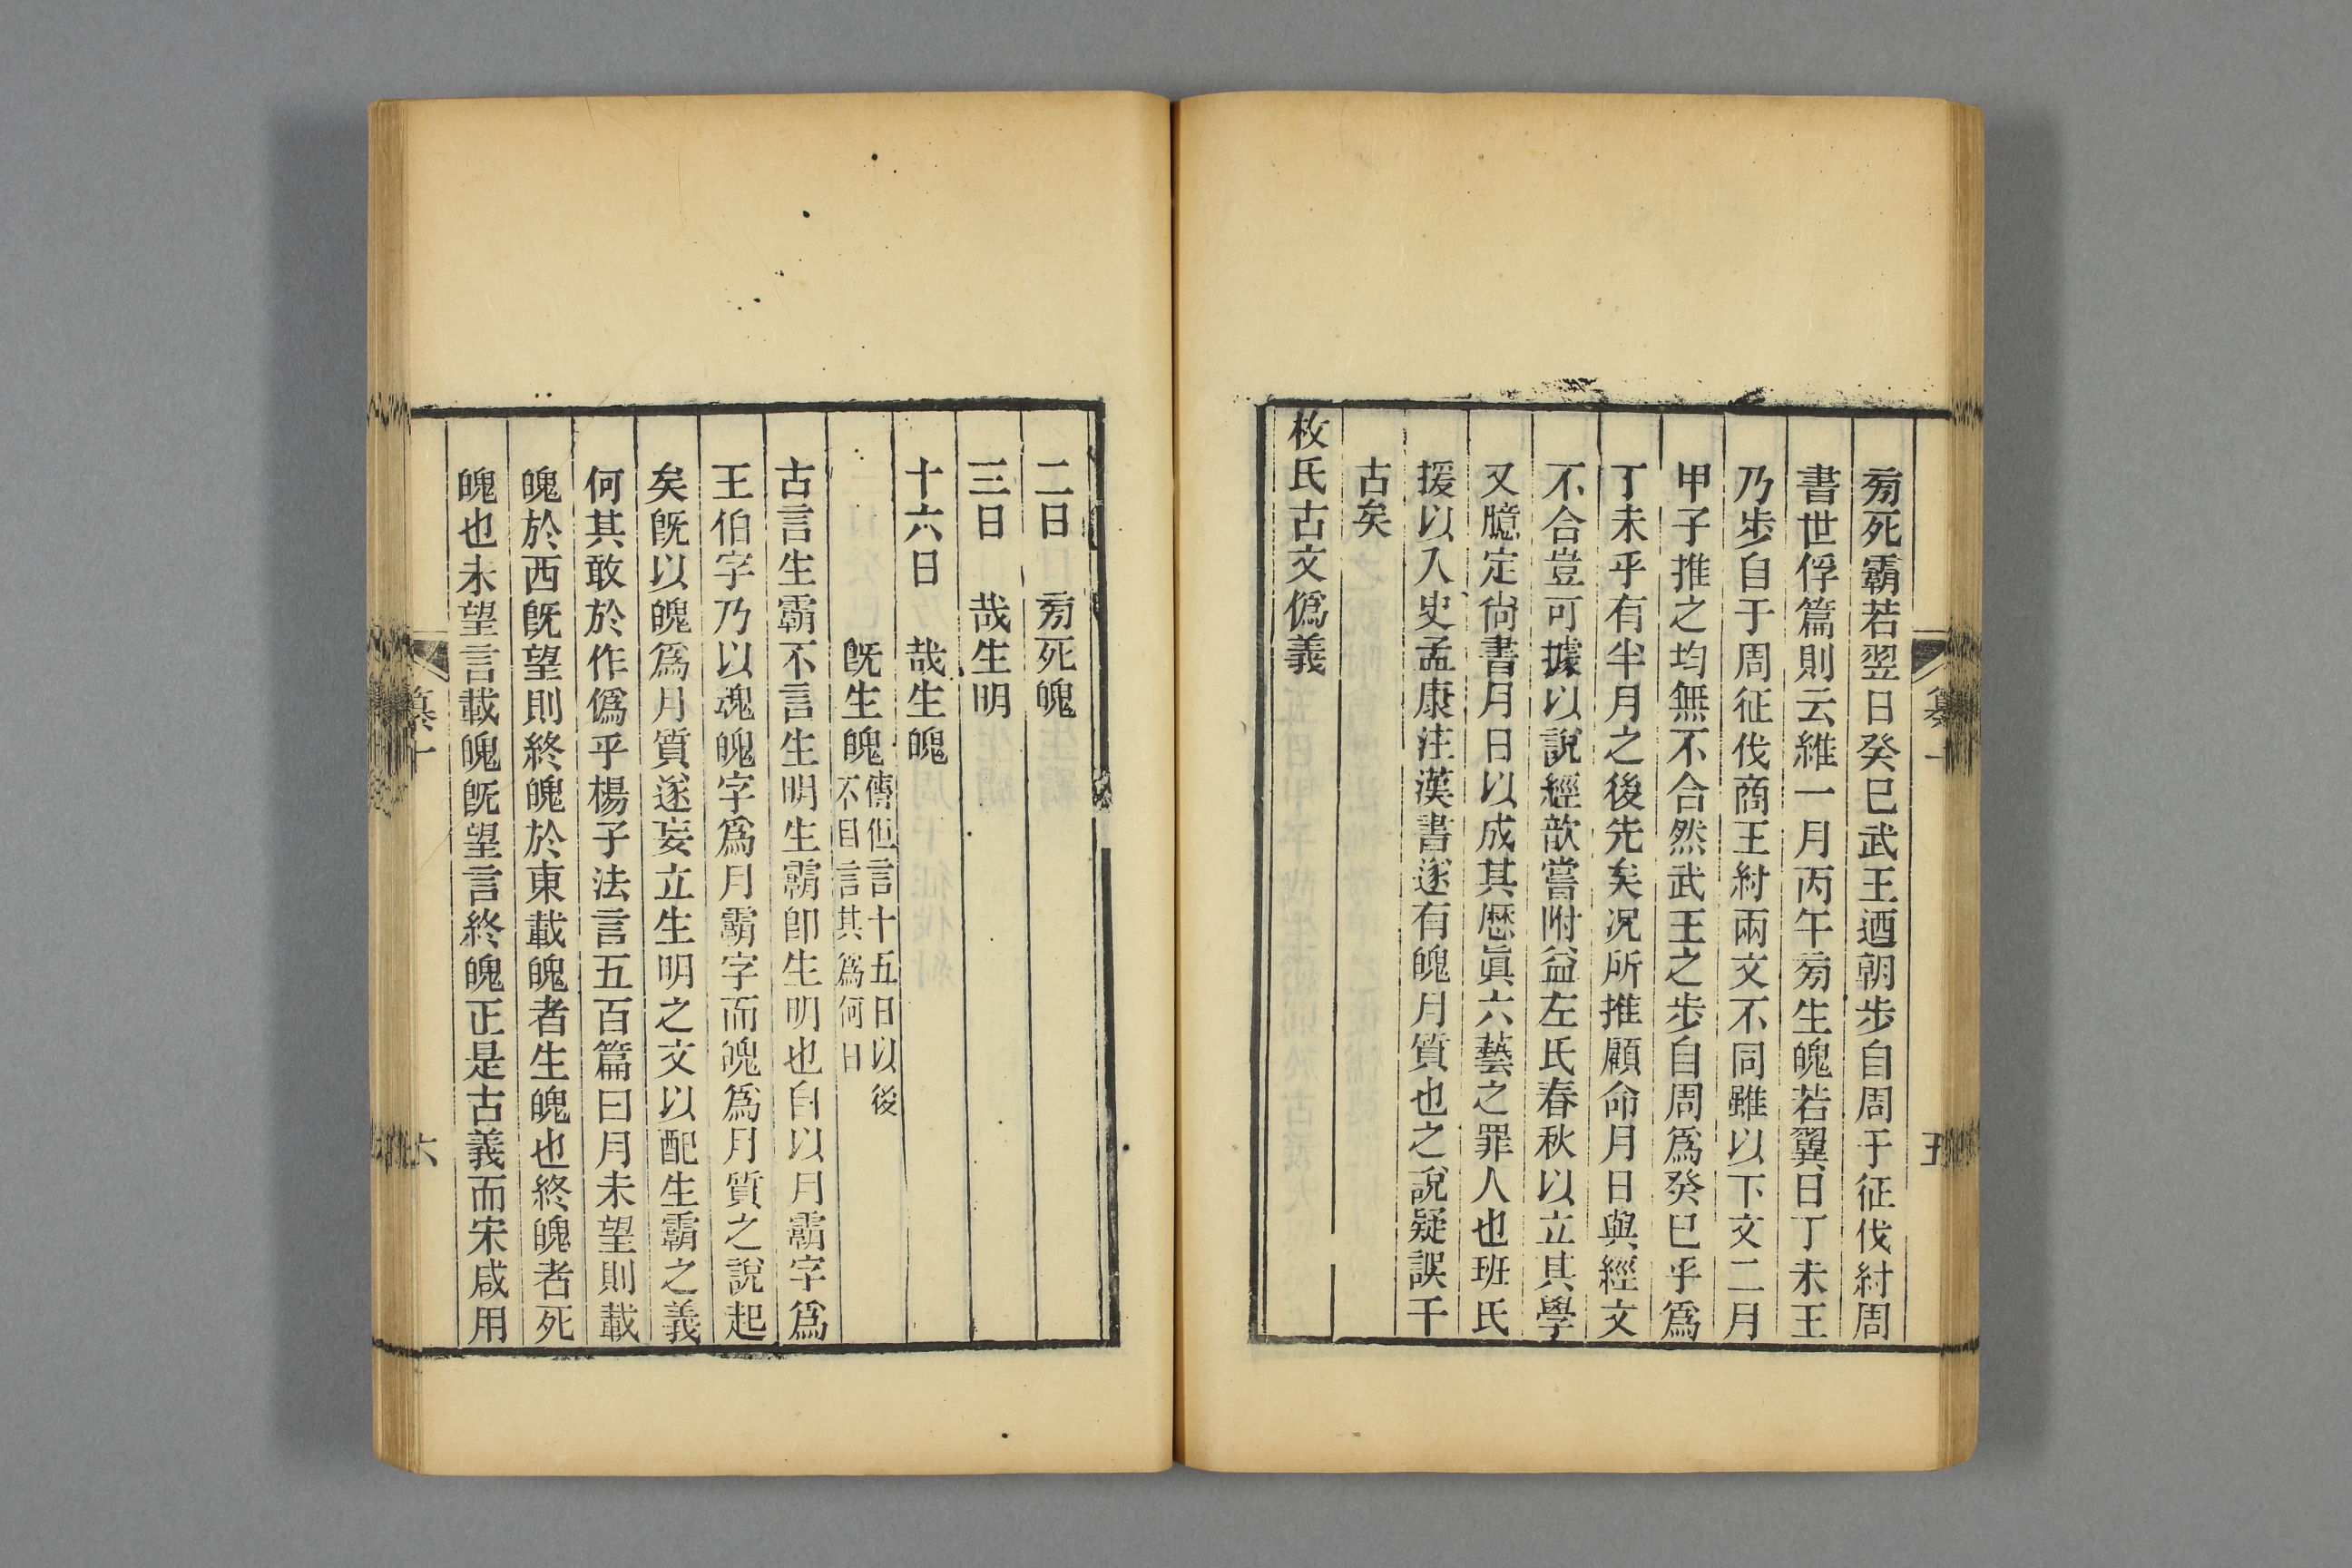 㫄死霸若翌日癸巳武王迺朝步自周于征伐紂周
書世俘篇則云維一月丙午㫄生魄若翼日丁未王
乃步自于周征伐商王紂兩文不同雖以下文二月
甲子推之均無不合然武王之步自周爲癸巳乎爲
丁未乎有半月之後先矣况所推顧命月日與經文
不合豈可據以說經歆嘗附益左氏春秋以立其學
又臆定尙書月日以成其厯眞六藝之罪人也班氏
援以入史孟康注漢書遂有魄月質也之說疑誤千
古矣
枚氏古文僞義
二日 㫄死魄
三日 哉生明
十六日 哉生魄
旣生魄傳但言十五日以後
不目言其爲何日
古言生霸不言生明生霸卽生明也自以月霸字爲
王伯字乃以魂魄字爲月霸字而魄爲月質之說起
矣旣以魄爲月質遂妄立生明之文以配生霸之義
何其敢於作僞乎楊子法言五百篇曰月未望則載
魄於西旣望則終魄於東載魄者生魄也終魄者死
魄也未望言載魄旣望言終魄正是古義而宋咸用
纂十
六